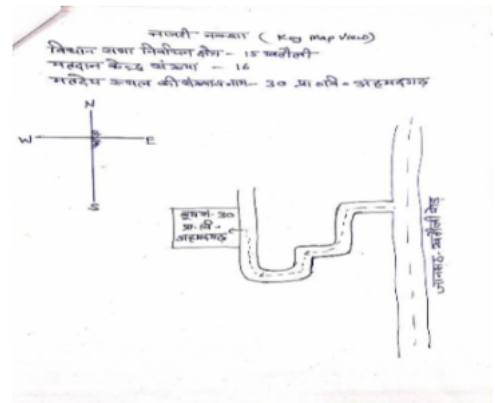 नाजरी नक्शा ( Key Map View)
विधान सभा निर्वाचन क्षेत्र - 15 खतौली
मतदान केन्द्र संख्या - 16
मतदेय स्थल की संख्या व नाम - 30 प्रा०वि० अहमदगढ़
N
W
E
S
बूथ सं- 30
प्रा. वि.
अहमदगढ़
जानसठ-खतौली रोड